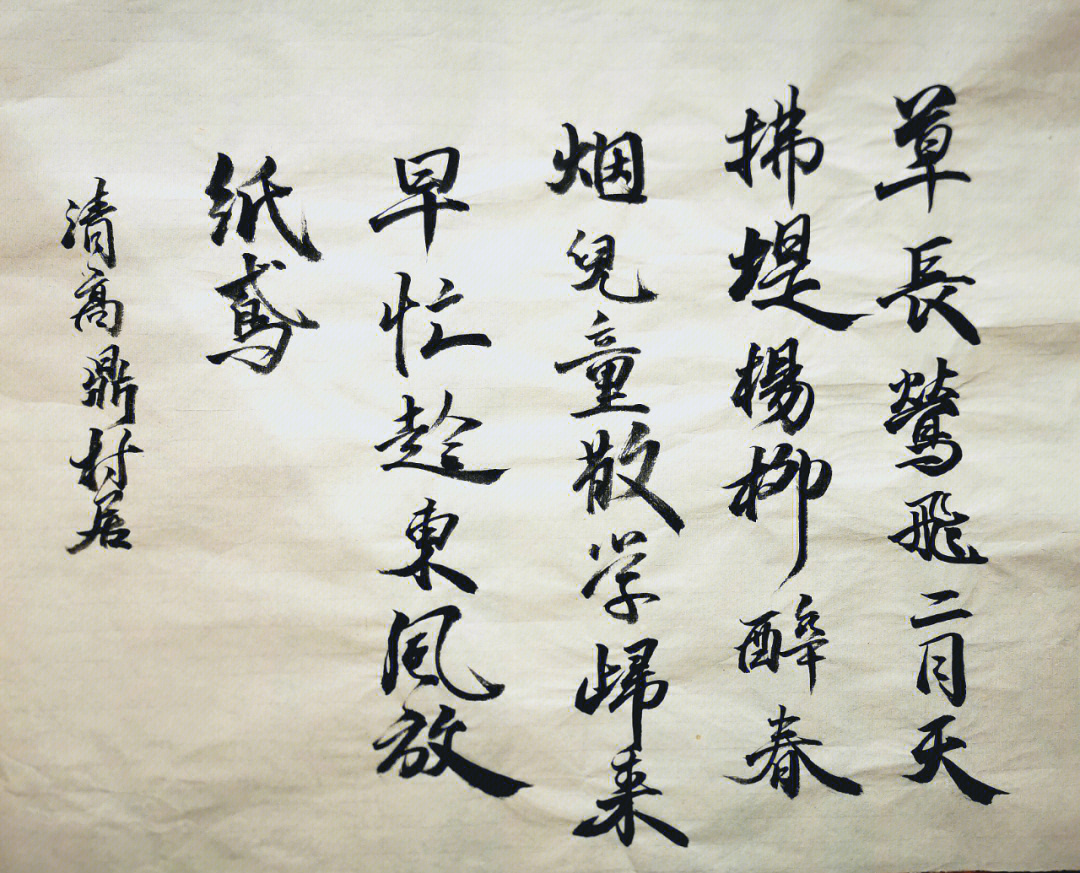 草長鶯飛二月天
拂堤楊柳醉春
烟兒童散学歸来
早忙趁東風放
纸鳶
清高鼎村居